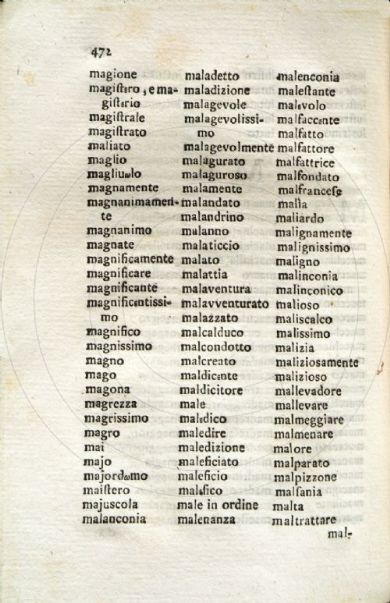 472
magione
magiſtero, e ma-
giſterio
magiſtrale
magiſtrato
maliato
maglio
magliuolo
magnamente
magnanimamen-
te
magnanimo
magnate
magnificamente
magnificare
magnificante
magnificentissi-
mo
magnifico
magnissimo
magno
mago
magona
magrezza
magrissimo
magro
mai
majo
majordomo
maiſtero
majuscola
malanconia
maladetto
maladizione
malagevole
malagevolissi-
mo
malagevolmente
malagurato
malaguroso
malamente
malandato
malandrino
malanno
malaticcio
malato
malattia
malaventura
malavventurato
malazzato
malcalduco
malcondotto
malcreato
maldicente
maldicitore
male
maledico
maledire
maledizione
maleficiato
maleficio
malefico
male in ordine
malenanza
malenconia
maleſtante
malevolo
malfaccente
malfatto
malfattore
malfattrice
malfondato
malfrancese
malìa
maliardo
malignamente
malignissimo
maligno
malinconia
malinconico
malioso
maliscalco
malissimo
malizia
maliziosamente
malizioso
mallevadore
mallevare
malmeggiare
malmenare
malore
malparato
malpizzone
malsania
malta
maltrattare
mal-